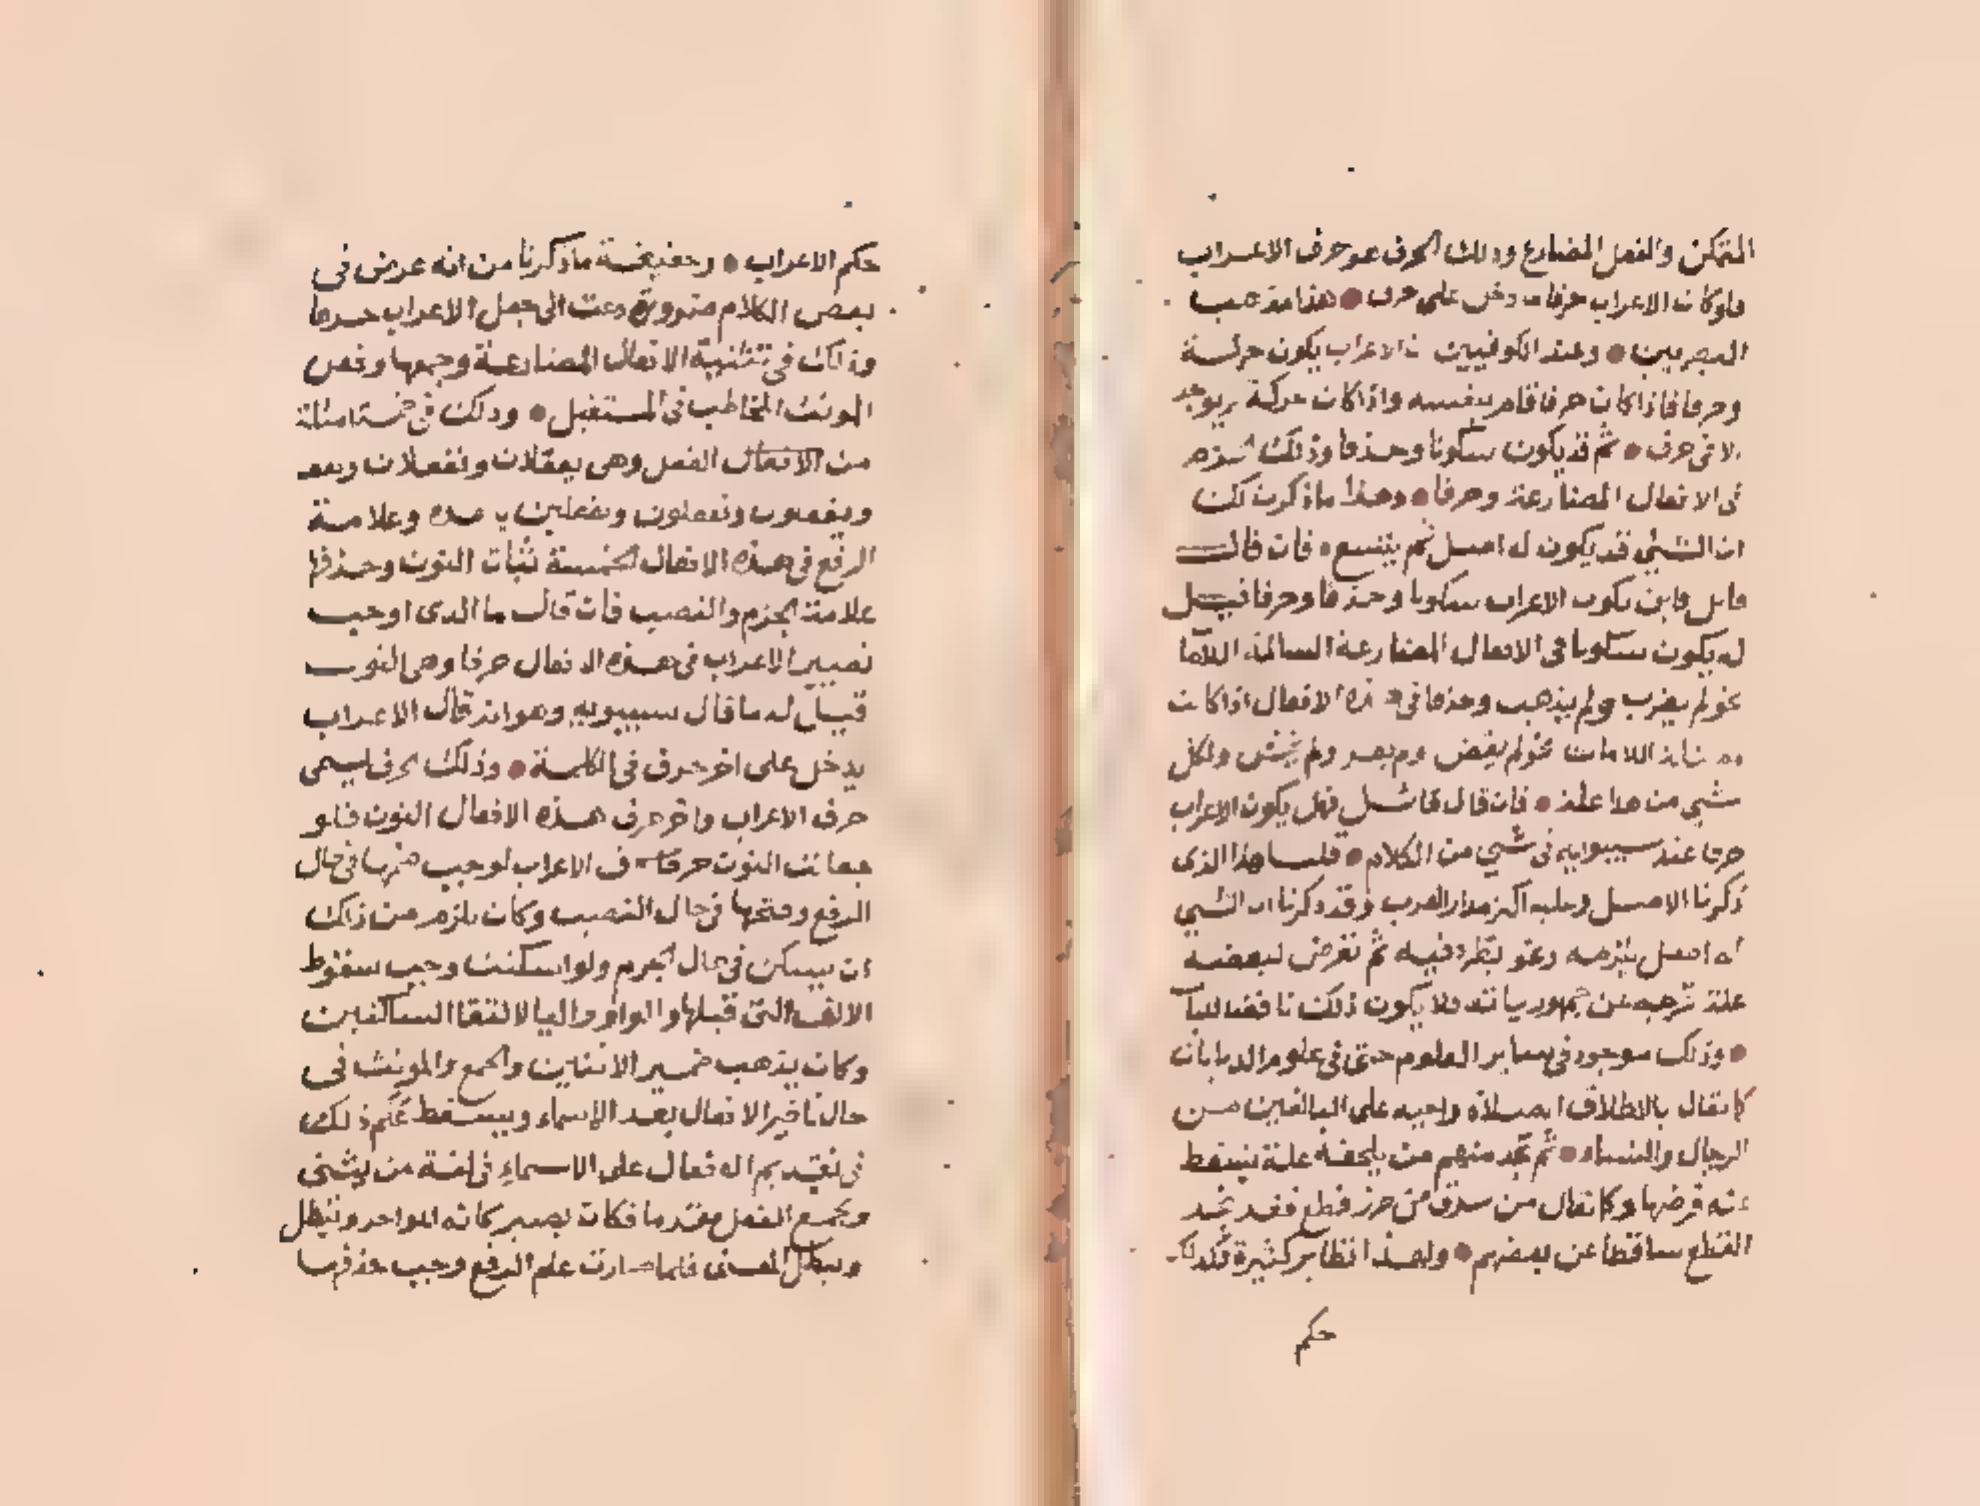 المتمكن والفعل المضارع وذلك الحرف هو حرف الاعراب
فلو كان الاعراب حرفا ما دخل على حرف هذا مذهب
البصريين وعند الكوفيين ان الاعراب يكون حركة
وحرفا فاذا كان حرفا قام بنفسه واذا كان حركة لم يوجد
الا في حرف ثم قد يكون سكونا وحذفا وذلك الجزم
في الافعال المضارعة وحرفا وهذا ما ذكرت لك
ان الشي قد يكون له اصل ثم يتسع فان قال
قايل فاين يكون الاعراب سكونا وحذفا وحرفا قيل
له يكون سكونا في الافعال المضارعة السالمة اللاما
نحو لم يضرب ولم يذهب وحذفا في هذه الافعال اذا كانت
معتلة اللامات نحو لم يقض ولم يغز ولم يخش ولكل
شي من هذا علة فان قال قائل فهل يكون الاعراب
حرفا عند سيبويه في شي من الكلام قلنا هذا الذى
ذكرنا الاصل وعليه اكثر مدار العرب وقد ذكرنا ان الشي
له اصل يلزمه ونحو يطرد فيه ثم تعرض لبعضه
علة تخرجه عن جمهور بابه فلا يكون ذلك ناقضا للبا
وذلك موجود في ساير العلوم حتى في علوم الديانات
كما يقال بالاطلاق الصلاة واجبه على البالغين من
الرجال والنساء ثم تجد منهم من يلحقه علة تسقط
عنه فرضها وكما يقال من سرق من حرز قطع فقد نجد
القطع ساقطا عن بعضهم ولهذا نظاير كثيرة فكذلك
حكم
حكم الاعراب وحقيقته ما ذكرنا من انه عرض في
بعض الكلام ضرورة دعت الى جعل الاعراب حرفا
وذلك في تثنية الافعال المضارعة وجمعها وفعل
المونث المخاطب في المستقبل وذلك في خمسة امثلة
من الافعال الفعل وهى يفعلان وتفعلان
ويفعلون وتفعلون وتفعلين يا هذه وعلامة
الرفع في هذه الافعال الخمسة ثبات النون وحذفها
علامة الجزم والنصب فان قال ما الذى اوجب
تصيير الاعراب في هذه الافعال حرفا وهى النون
قيل له ما قال سيبويه وهو انه قال الاعراب
يدخل على اخر حرف في الكلمة وذلك الحرف يسمى
حرف الاعراب واخر حرف هذه الافعال النون فلو
جعلت النون حرف الاعراب لوجب ضمها في حال
الرفع وفتحها في حال النصب وكان يلزم من ذلك
ان تسكن في حال الجزم ولو اسكنت وجب سقوط
الالف التى قبلها والواو واليا لالتقا الساكنين
وكان يذهب ضمير الاثنين والجمع والمونث في
حال تاخير الافعال بعد الاسماء ويسقط علم ذلك
في تقديم الافعال على الاسماء في لغة من يثنى
ويجمع الفعل مقدما فكان يصير كانه للواحد
ويبطل المعنى فلما صارت علم الرفع وجب حذفها